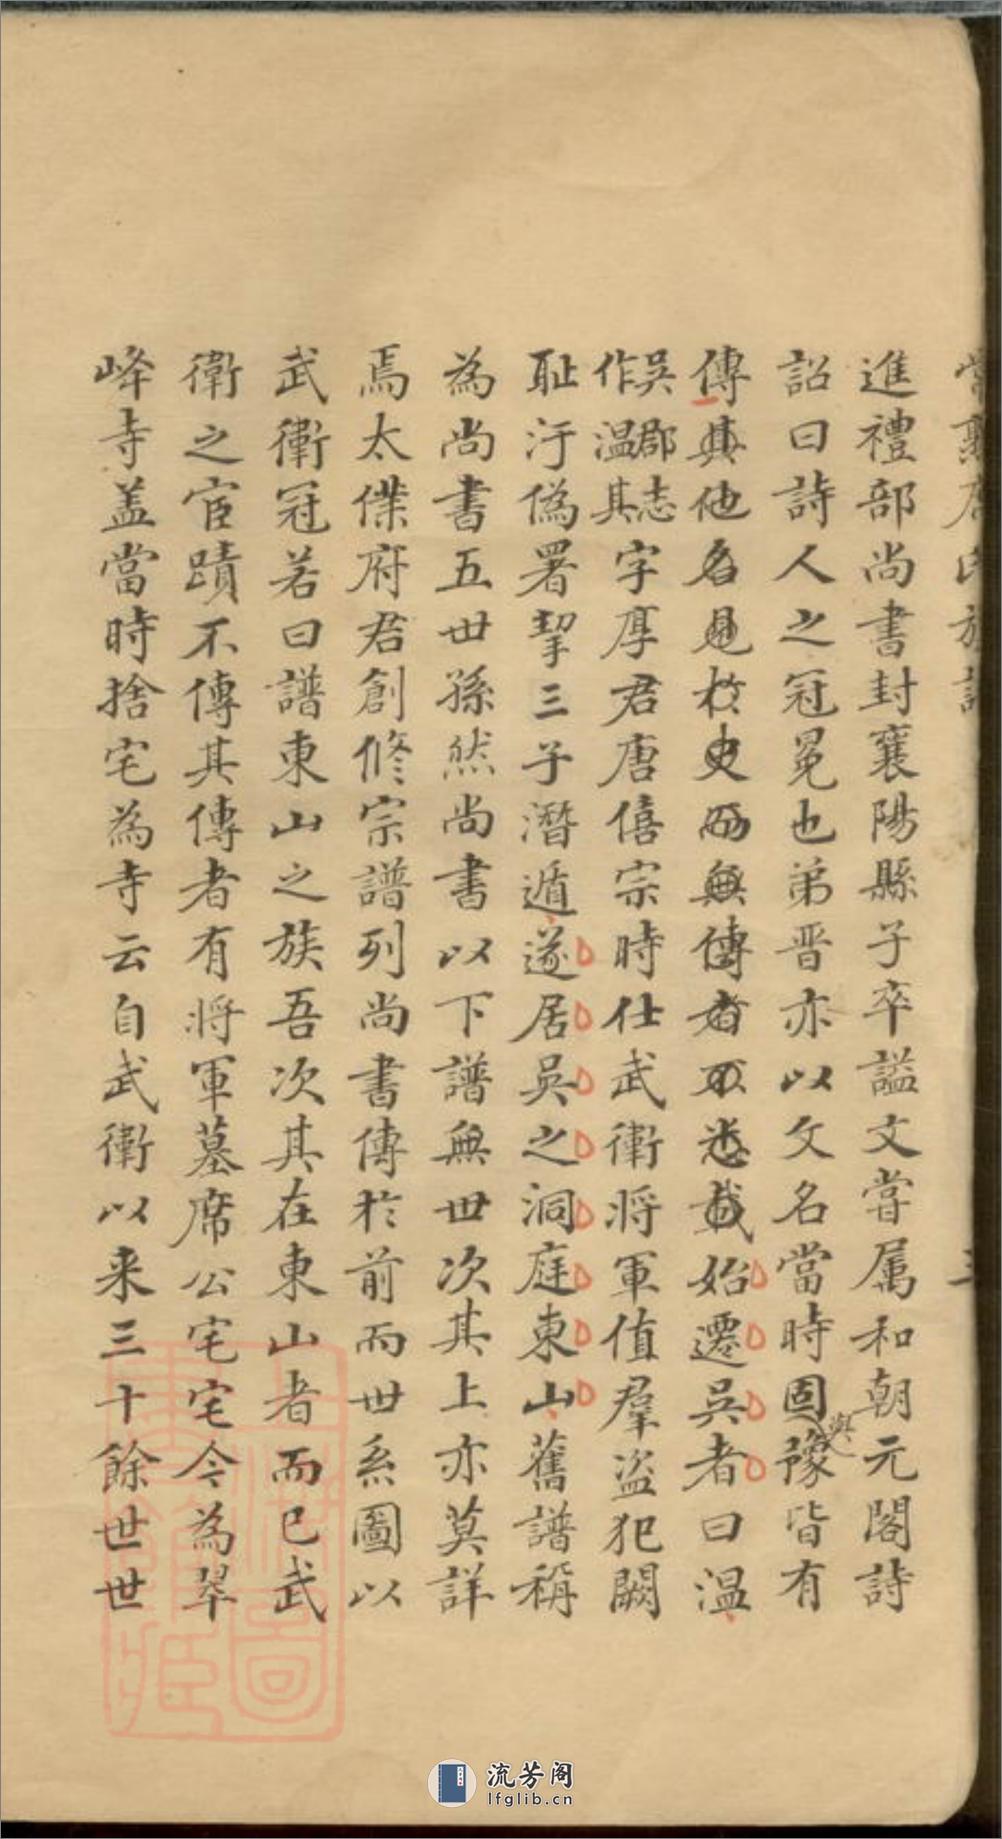 進禮部尚書封襄陽縣子卒謚文嘗属和朝元閣詩
詔曰詩人之冠冕也弟晋亦以文名當時固與豫皆有
傳其他名見於史而無傳者不悉載始遷吳者曰温
吳郡志
作温其
字厚君唐僖宗時仕武衛將軍值羣盗犯闕
耻汙偽署挈三子潛遁遂居吳之洞庭東山舊譜稱
為尚書五世孫然尚書以下譜無世次其上亦莫詳
焉太僕府君創修宗譜列尚書傳於前而世系圖以
武衛冠若曰譜東山之族吾次其在東山者而已武
衛之宦蹟不傳其傳者有將軍墓席公宅宅今為翠
峰寺盖當時捨宅為寺云自武衛以来三十餘世世
上海圖書館藏
流芳阁
lfglib.cn